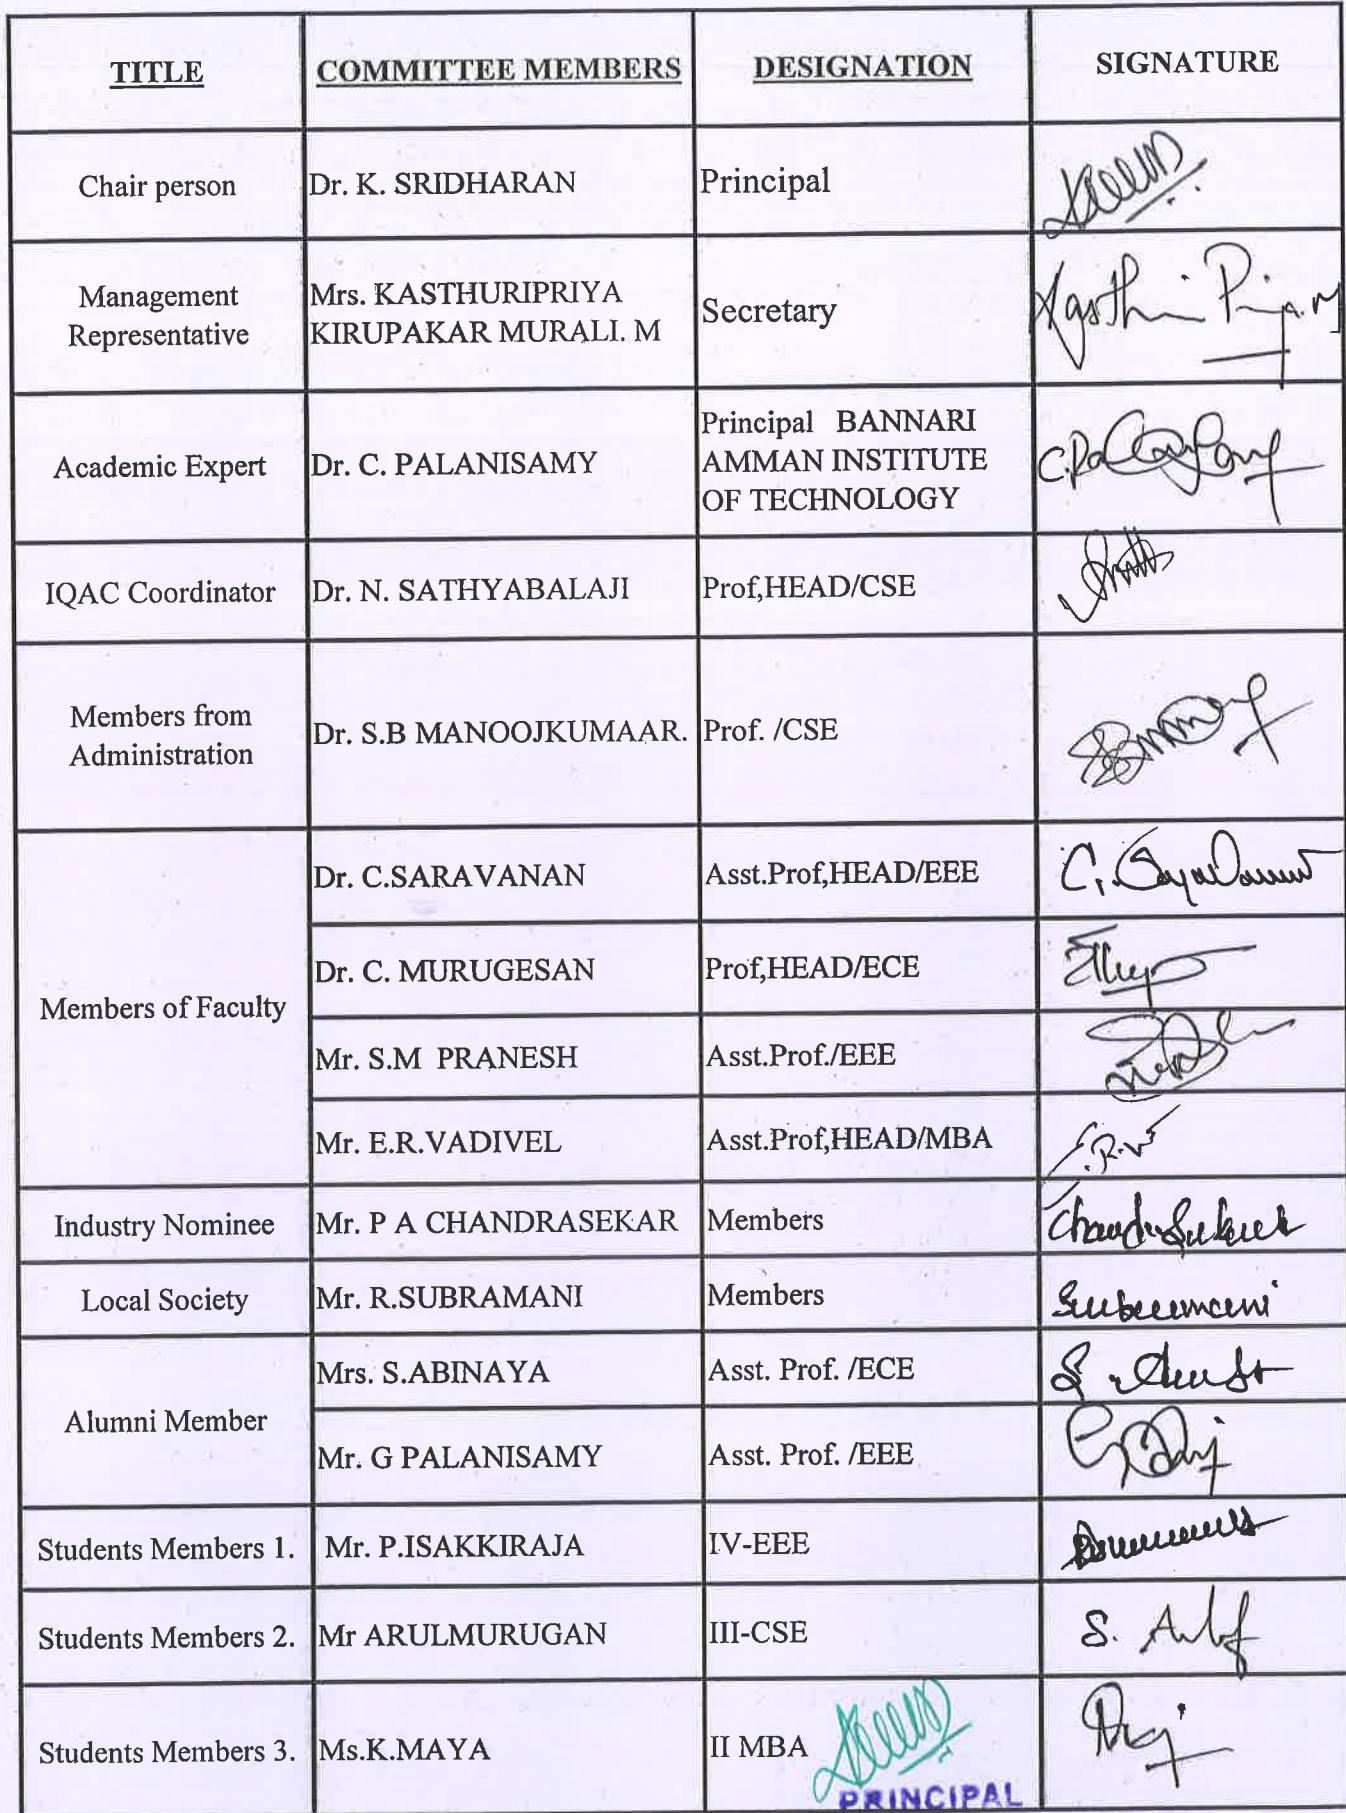 TITLE COMMITTEE MEMBERS DESIGNATION SIGNATURE
Chair person Dr. K. SRIDHARAN Principal
Management Representative Mrs. KASTHURIPRIYA KIRUPAKAR MURALI. M Secretary
Academic Expert Dr. C. PALANISAMY Principal BANNARI AMMAN INSTITUTE OF TECHNOLOGY
IQAC Coordinator Dr. N. SATHYABALAJI Prof,HEAD/CSE
Members from Administration Dr. S.B MANOOJKUMAAR. Prof. /CSE
Members of Faculty Dr. C.SARAVANAN Asst.Prof,HEAD/EEE
Dr. C. MURUGESAN Prof,HEAD/ECE
Mr. S.M PRANESH Asst.Prof./EEE
Mr. E.R.VADIVEL Asst.Prof,HEAD/MBA
Industry Nominee Mr. P A CHANDRASEKAR Members
Local Society Mr. R.SUBRAMANI Members
Alumni Member Mrs. S.ABINAYA Asst. Prof. /ECE
Mr. G PALANISAMY Asst. Prof. /EEE
Students Members 1. Mr. P.ISAKKIRAJA IV-EEE
Students Members 2. Mr ARULMURUGAN III-CSE
Students Members 3. Ms.K.MAYA II MBA
PRINCIPAL